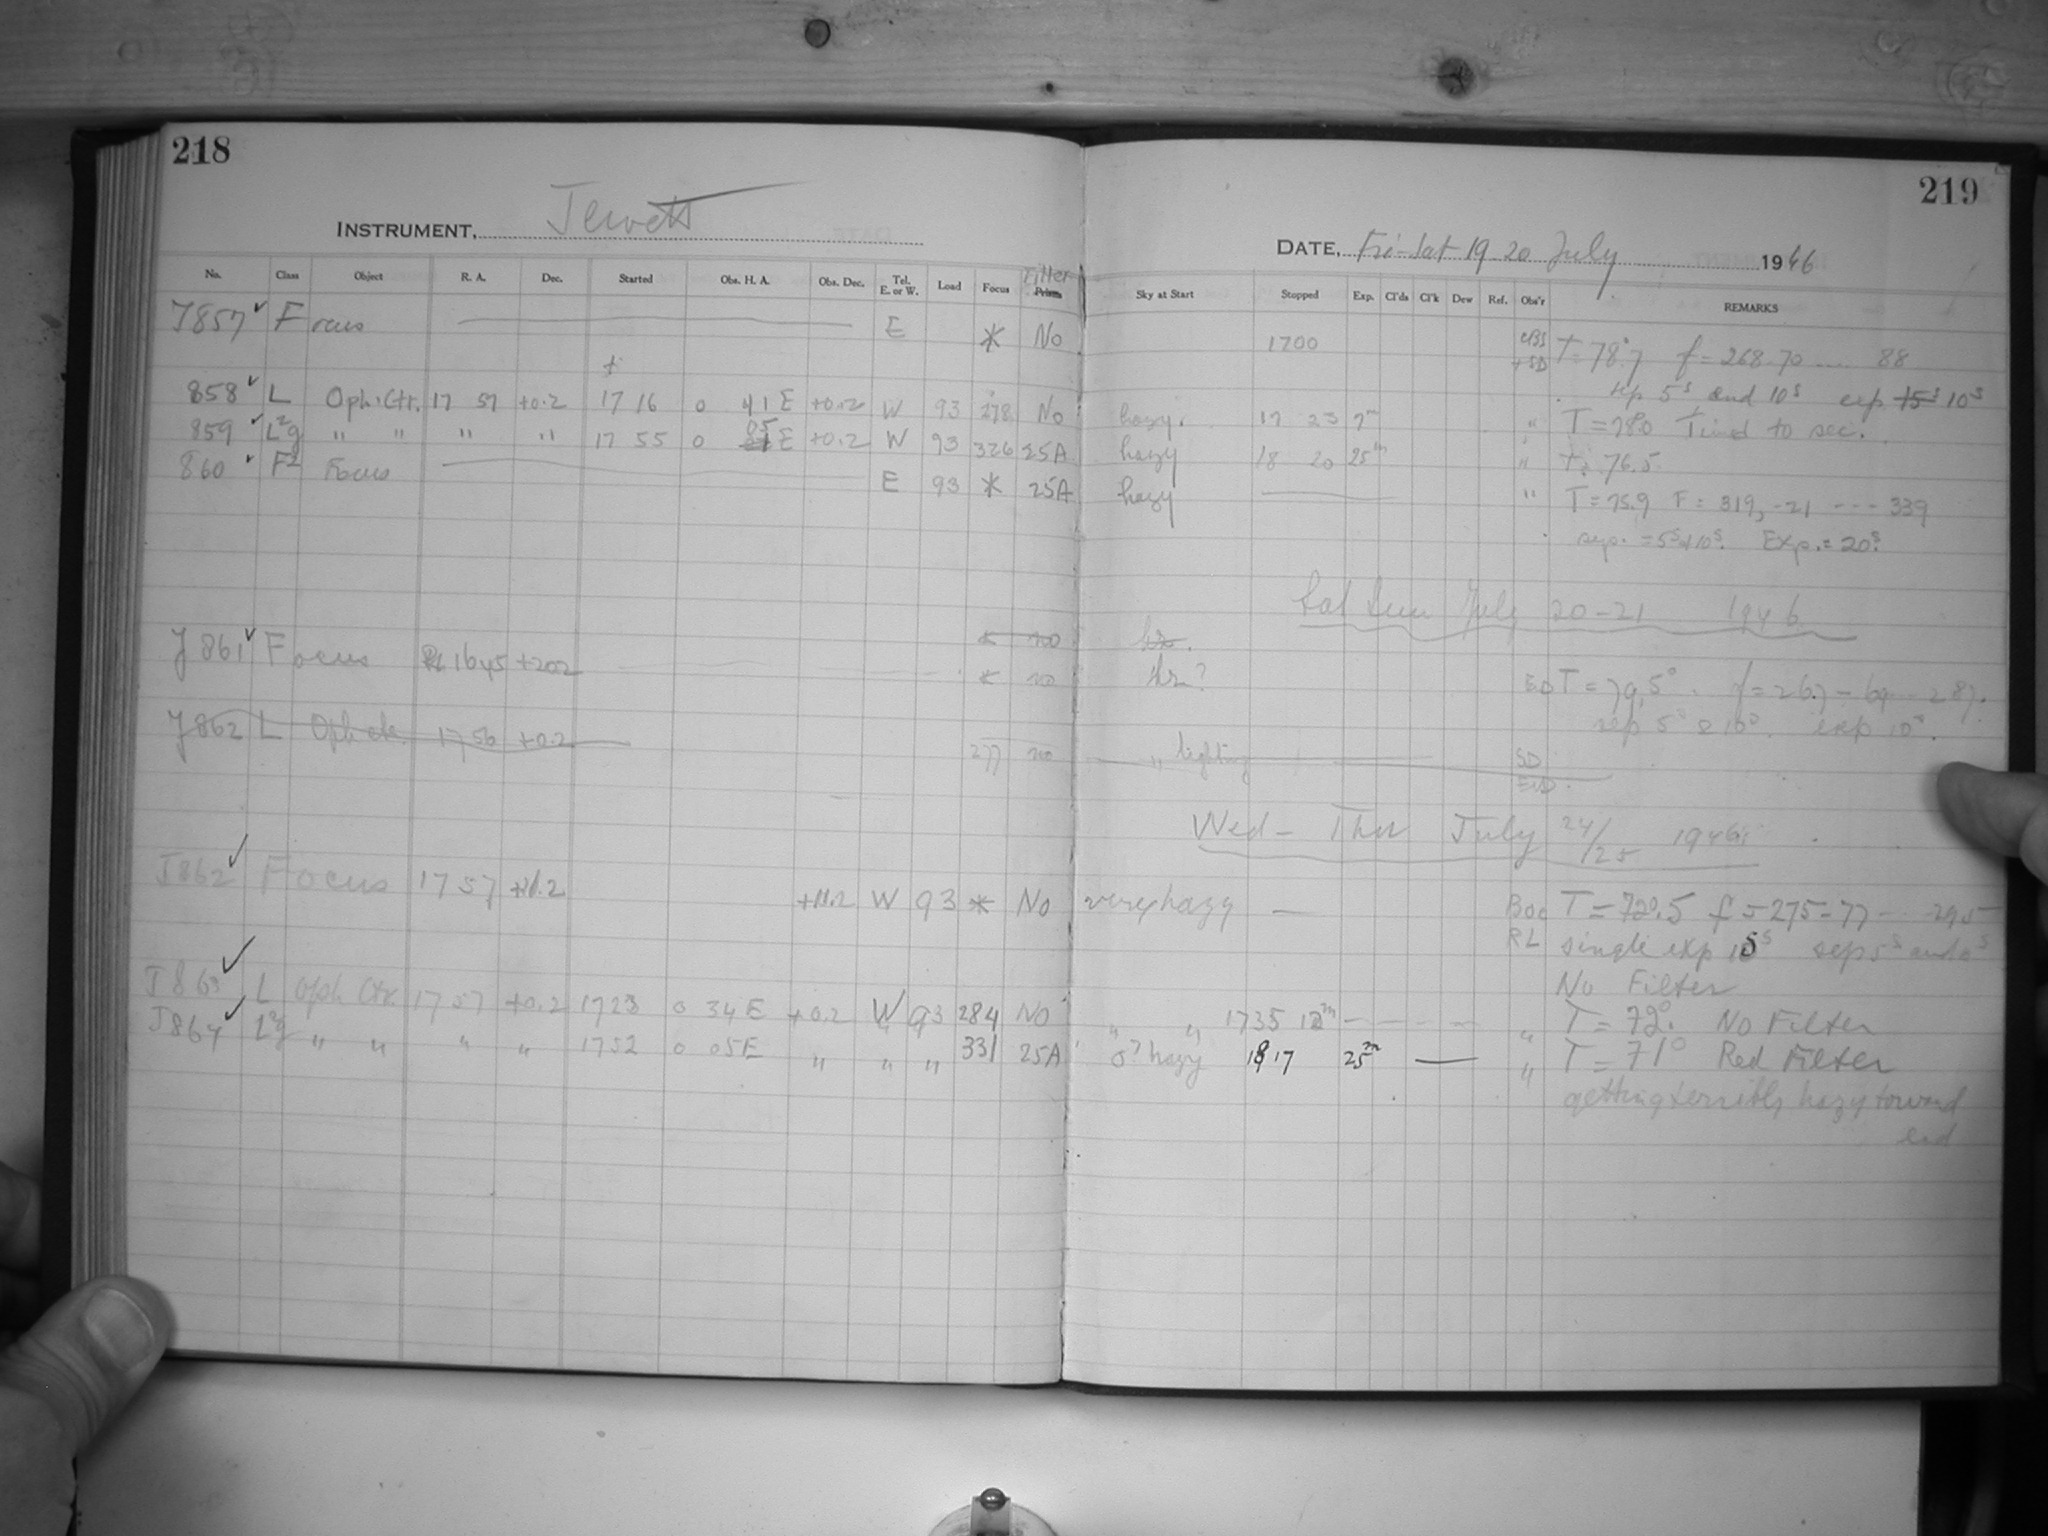 218
INSTRUMENT, Jewett
No. Class Object R. A. Dec. Started Obs. H. A. Obs. Dec. Tel. E. or W. Load Focus Filter Prism
J857 ✓ Focus E * No
858 ✓ L Oph. Ctr. 17 57 +0.2 17 16 0 41 E +0.2 W 93 278 No
859 ✓ L²g " " " " 17 55 0 05 E +0.2 W 93 326 25A
860 ✓ F² Focus E 93 * 25A
J861 ✓ Focus 1645 +202 * no
* no
J862 L Oph ctr. 17 56 +0.2 277 no
J862 ✓ Focus 17 57 +11.2 +11.2 W 93 * No
J863 ✓ L Oph Ctr 17 57 +0.2 1723 0 34 E +0.2 W 93 284 No
J864 ✓ L²g " " " " 1752 0 05E " " " 331 25A
219
DATE, Fri-Sat 19-20 July 1946
Sky at Start Stopped Exp. Cl'ds Cl'k Dew Ref. Obs'r REMARKS
1700 + SD T=78.°7 f=268.70 .... 88
sep 5ˢ and 10ˢ exp 15ˢ 10ˢ
hazy. 17 23 7ᵐ " T=78.0 Timed to sec.
hazy 18 20 25ᵐ " T= 76.5
hazy " T=75.9 F = 319,-21 --- 339
sep. = 5ˢ+10ˢ. Exp.= 20ˢ.
Sat Sun July 20-21 1946
hz.
hz? T=79.5° f=267-69 - 287.
sep 5ˢ & 10ˢ. exp 10ˢ.
" SD
Wed - Thu July 24/25 1946
very hazy — Boc T=72°.5 f=275-77 - - 295
RL single exp 15ˢ sep 5ˢ and 10ˢ
No Filter
" " 1735 12ᵐ - - - - " T=72°. No Filter
o? hazy 1817 25ᵐ — " T=71° Red Filter
getting terribly hazy toward
end